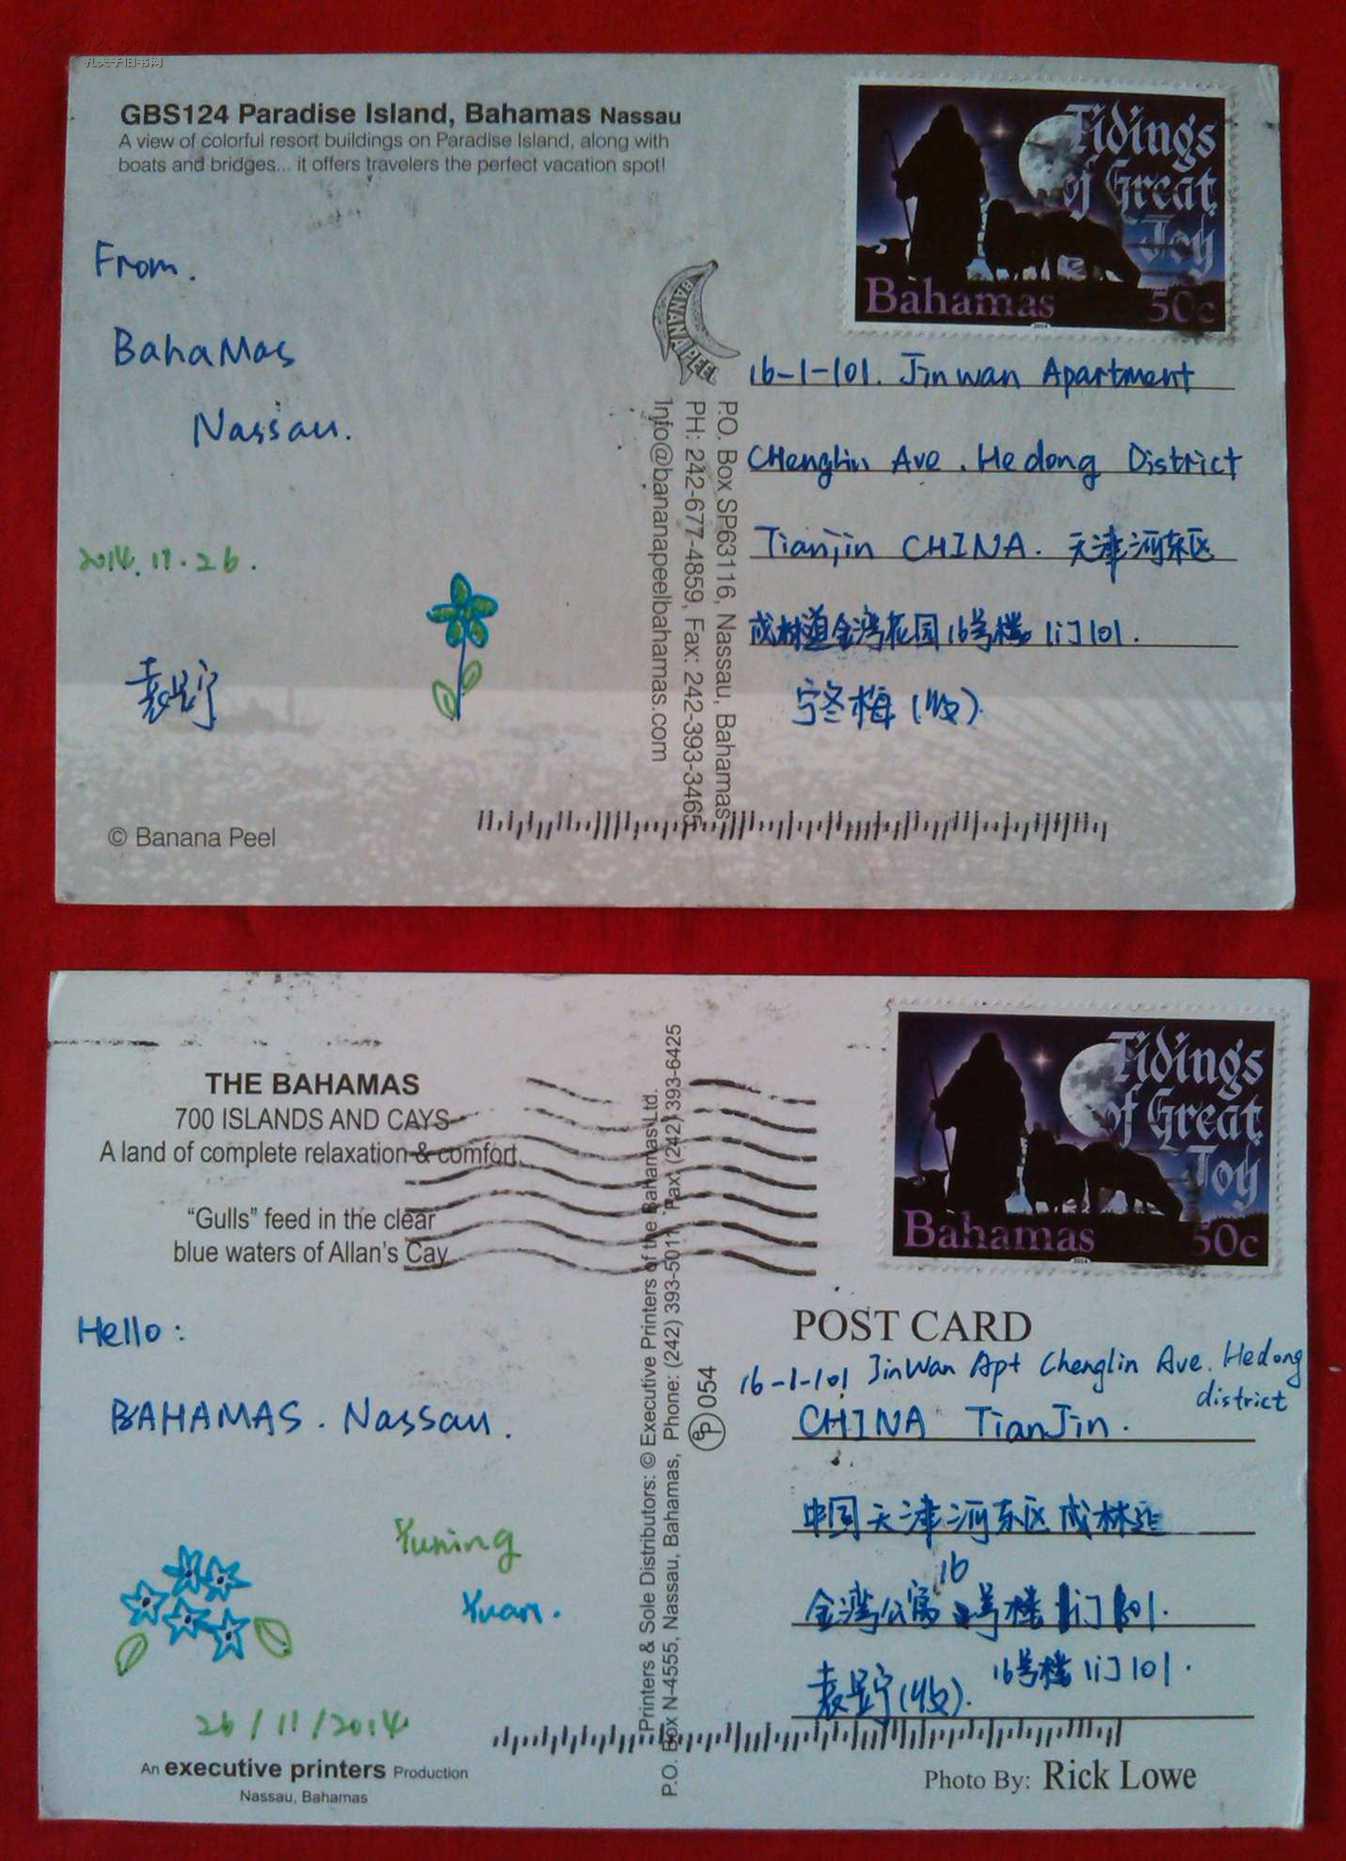 孔夫子旧书网
GBS124 Paradise Island, Bahamas Nassau
A view of colorful resort buildings on Paradise Island, along with
boats and bridges... it offers travelers the perfect vacation spot!
From.
BahaMas
Nassau.
2014.11.26.
© Banana Peel
BANANA PEEL
P.O. Box SP63116, Nassau, Bahamas
PH: 242-677-4859, Fax: 242-393-3465
Info@bananapeelbahamas.com
Tidings
of Great
Joy
Bahamas 50c
2014
16-1-101. Jinwan Apartment
CHenglin Ave. Hedong District
Tianjin CHINA. 天津河东区
成林道金湾花园16号楼1门101.
宁冬梅(收).
THE BAHAMAS
700 ISLANDS AND CAYS
A land of complete relaxation & comfort.
“Gulls” feed in the clear
blue waters of Allan's Cay
Hello:
BAHAMAS. Nassau.
Yuning
Yuan.
26/11/2014
An executive printers Production
Nassau, Bahamas
Printers & Sole Distributors: © Executive Printers of the Bahamas Ltd.
P.O. Box N-4555, Nassau, Bahamas, Phone: (242) 393-5011 Fax: (242) 393-6425
054
Tidings
of Great
Joy
Bahamas 50c
2014
POST CARD
16-1-101 JinWan Apt Chenglin Ave. Hedong
district
CHINA TianJin.
中国天津河东区成林道
金湾公寓16号楼1门101.
16号楼1门101.
(收).
Photo By: Rick Lowe